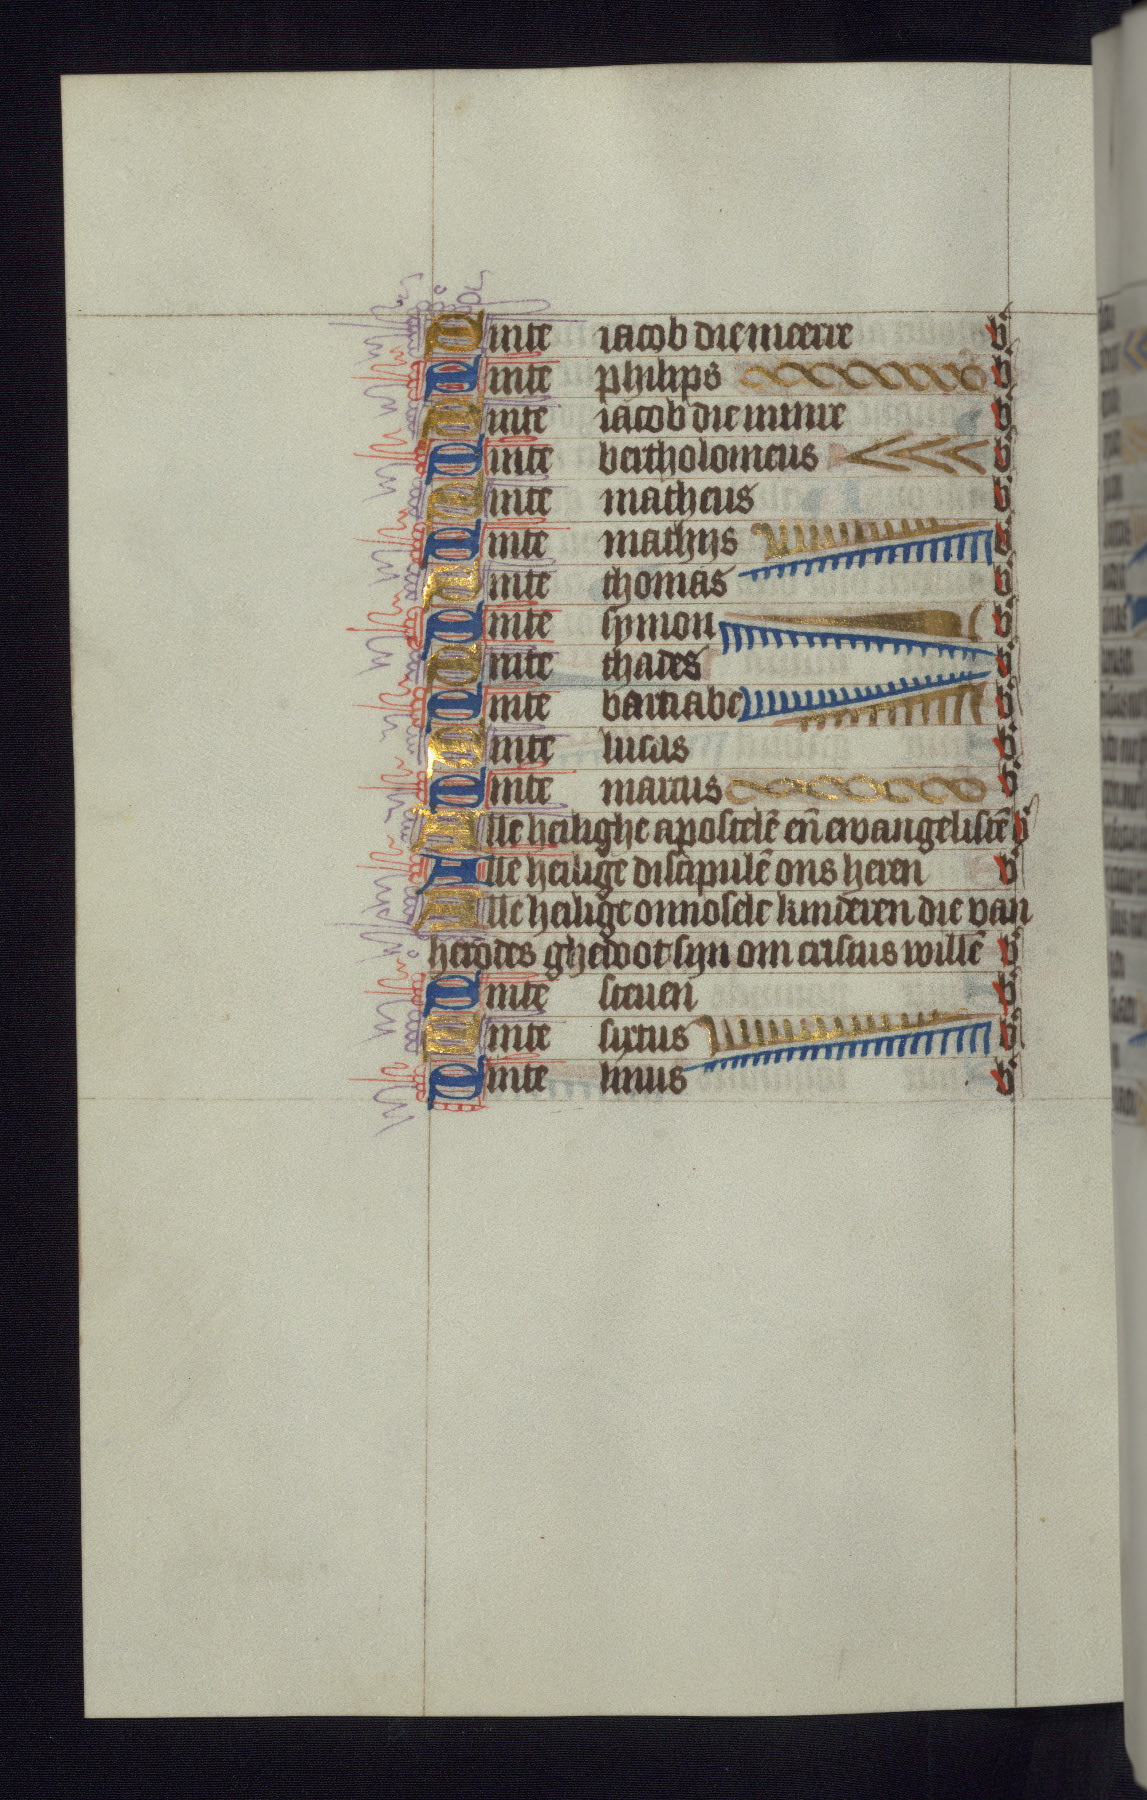 Sinte iacob die meerre b
Sinte philips b
Sinte iacob die minre b
Sinte bertholomeus b
Sinte matheus b
Sinte mathijs b
Sinte thomas b
Sinte symon b
Sinte thades b
Sinte barnabe b
Sinte lucas b
Sinte marcus b
Alle heilighe apostelē eñ ewangelistē b
Alle heilige discipulē ons heren b
Alle heilige onnosele kinderen die van
herodes ghedoot syn om cristus willē b
Sinte steuen b
Sinte sixtus b
Sinte linus b